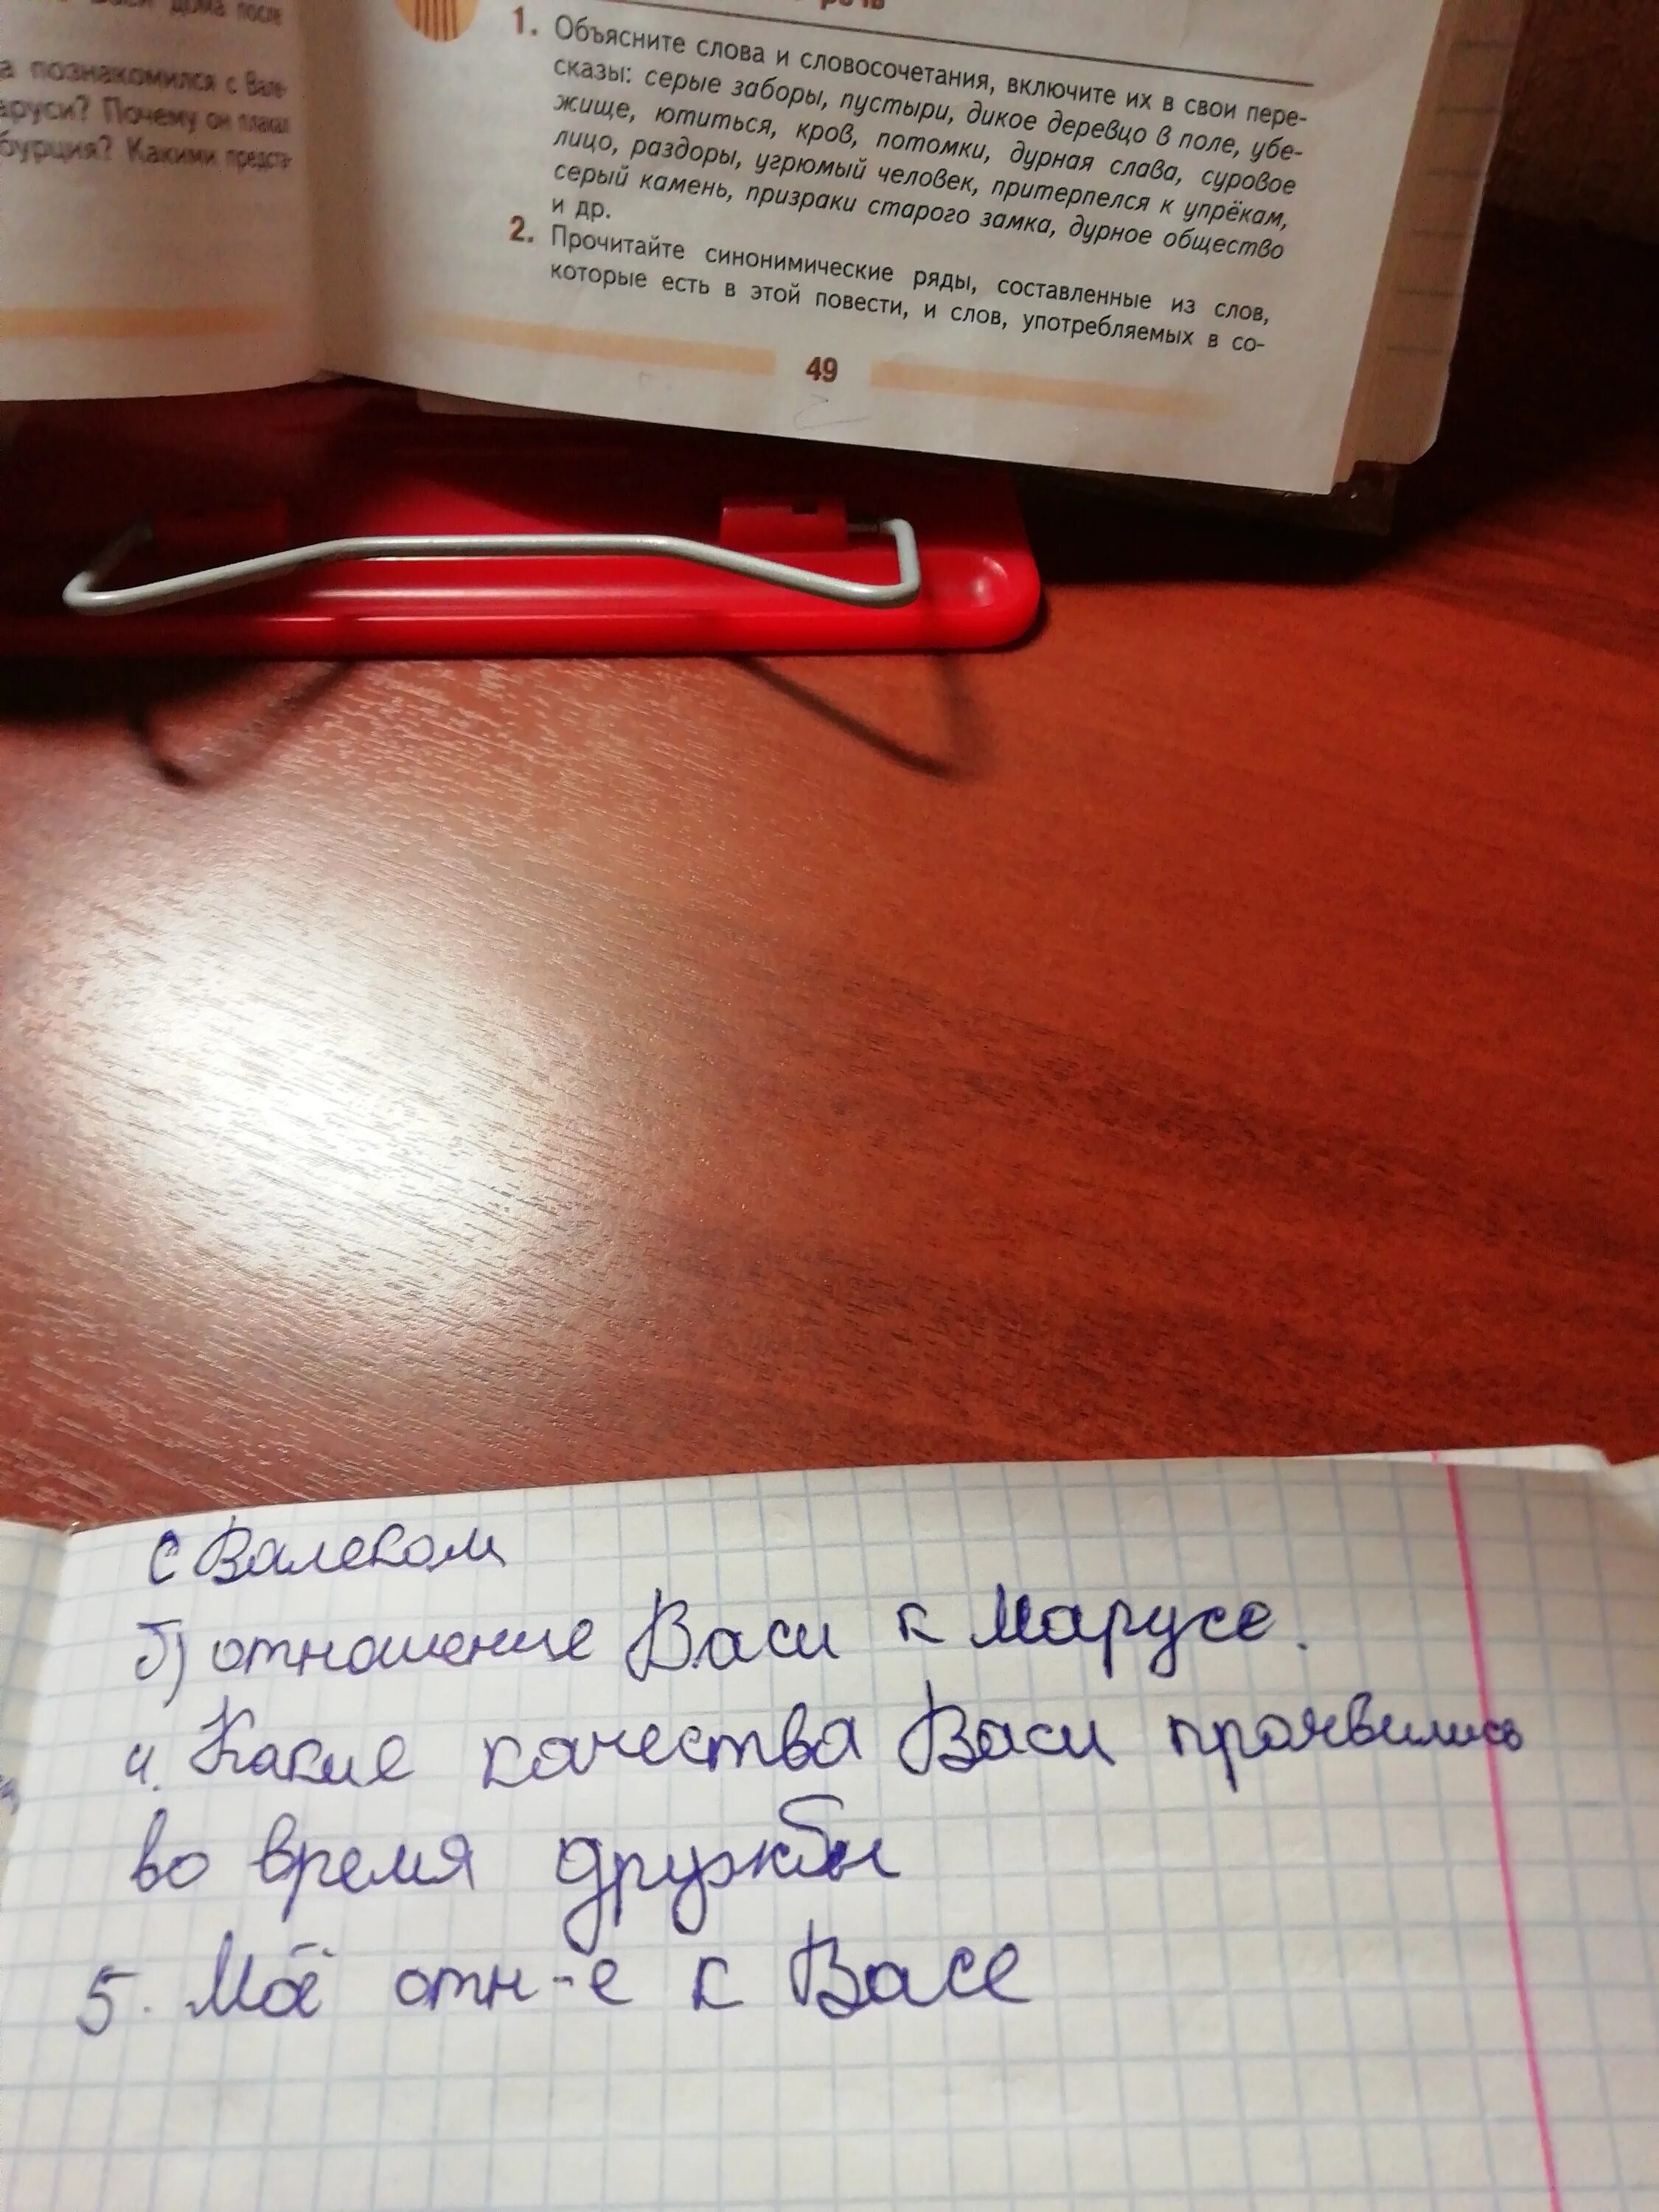 дома после
а познакомился с Вале-
аруси? Почему он плакал
бурция? Какими предста-
речь
1. Объясните слова и словосочетания, включите их в свои пере-
сказы: серые заборы, пустыри, дикое деревцо в поле, убе-
жище, ютиться, кров, потомки, дурная слава, суровое
лицо, раздоры, угрюмый человек, притерпелся к упрёкам,
серый камень, призраки старого замка, дурное общество
и др.
2. Прочитайте синонимические ряды, составленные из слов,
которые есть в этой повести, и слов, употребляемых в со-
49
с Валеком
б) отношение Васи к Марусе.
4. Какие качества Васи проявились
во время дружбы
5. Моё отн-е к Васе